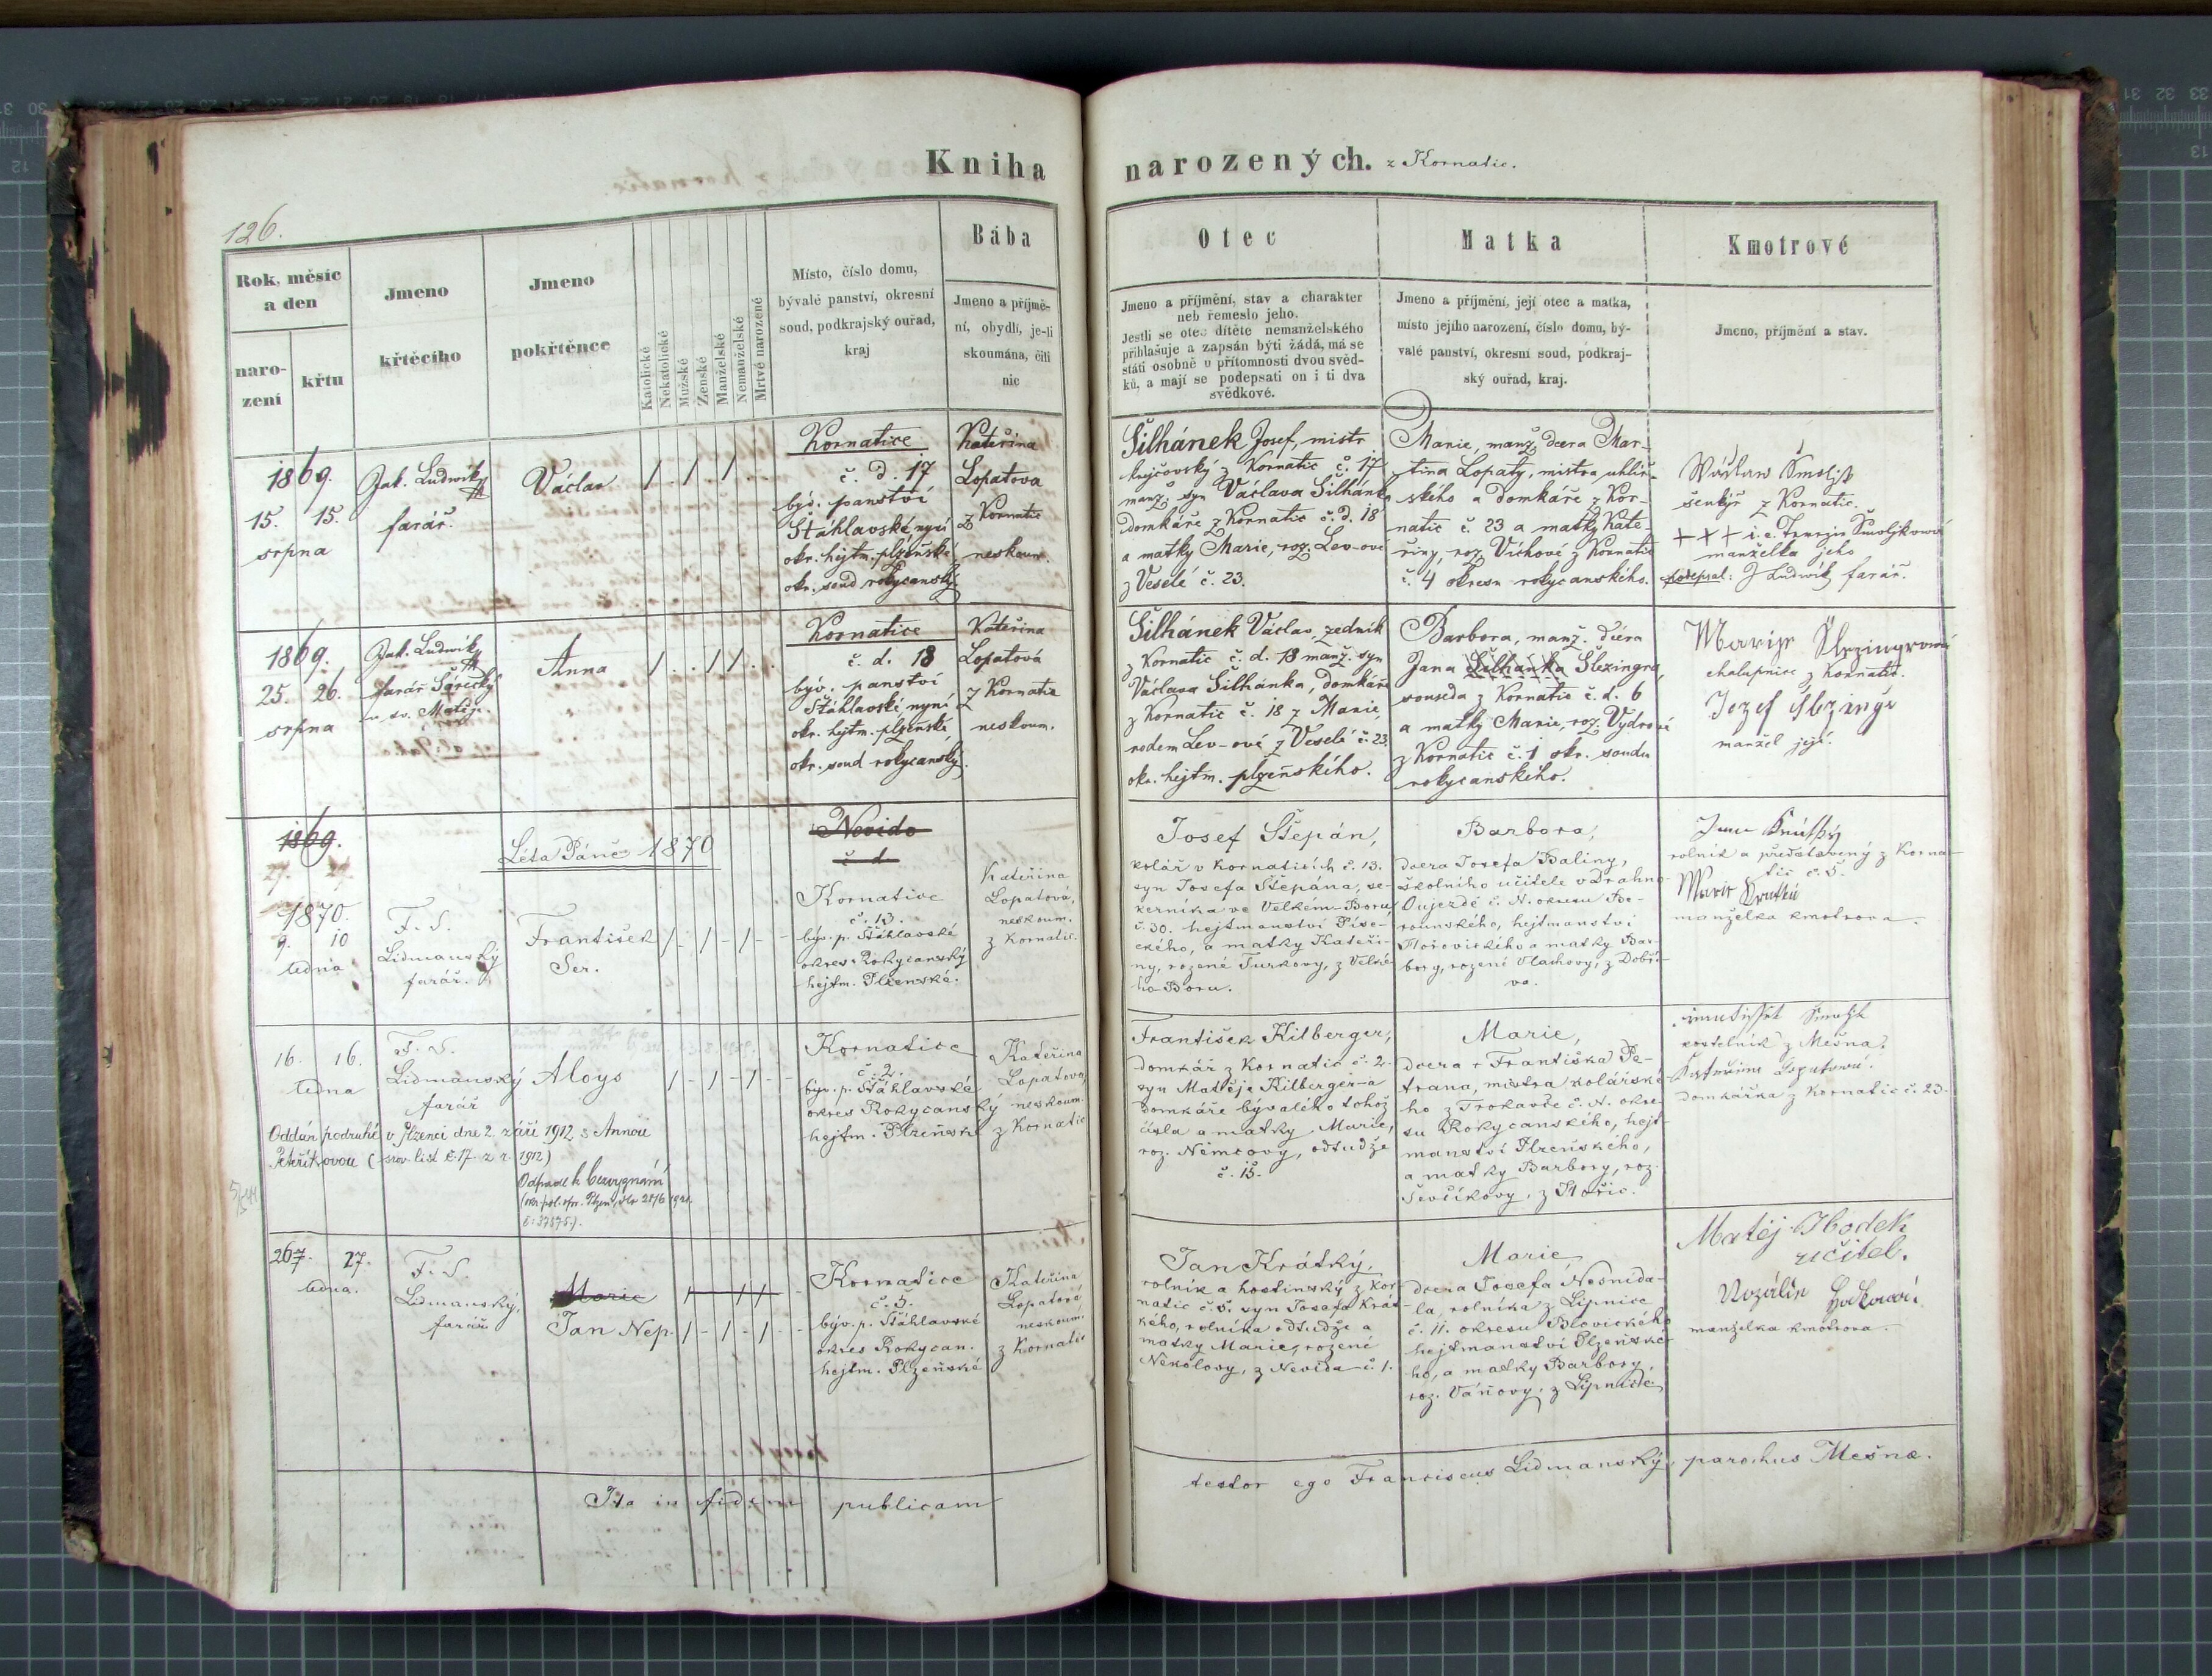 Kniha
narozených. z Kornatic.
126.
Rok, měsíc
a den
naro-
zení
křtu
Jmeno
křtěcího
Jmeno
pokřtěnce
Katolické
Nekatolické
Mužské
Ženské
Manželské
Nemanželské
Mrtvě narozené
Místo, číslo domu,
bývalé panství, okresní
soud, podkrajský ouřad,
kraj
Bába
Jmeno a příjmě-
ní, obydlí, je-li
skoumána, čili
nic
Otec
Jmeno a příjmění, stav a charakter
neb řemeslo jeho.
Jestli se otec dítěte nemanželského
přihlašuje a zapsán býti žádá, má se
státi osobně v přítomnosti dvou svěd-
ků, a mají se podepsati on i ti dva
svědkové.
Matka
Jmeno a příjmění, její otec a matka,
místo jejího narození, číslo domu, bý-
valé panství, okresní soud, podkraj-
ský ouřad, kraj.
Kmotrové
Jmeno, příjmění a stav.
1869.
15. 15.
srpna
Jak. Ludwik
farář.
Václav
Kornatice
č. d. 17
býv. panství
Štáhlavské nyní
okr. hejtm. plzeňské
okr. soud rokycanský
Kateřina
Lopatova
z Kornatic
neskoum.
Šilhánek Josef, mistr
krejčovský z Kornatic č. 17
manž. syn Václava Šilhánka
domkáře z Kornatic č. d. 18
a matky Marie, roz. Lev-ové
z Veselé č. 23.
Marie, manž. dcera Mar-
tina Lopaty, mistra uhlíř-
ského a domkáře z Kor-
natic č. 23 a matky Kate-
řiny, roz. Víchové z Kornatic
č. 4 okresu rokycanského.
Wáclaw Smoljk
šenkýř z Kornatic.
+++ i. e. Smoljkowá
manželka jeho
podepsal: J Ludwik farář.
1869.
25. 26.
srpna
Jak. Ludwik
farář
u sv. Matěj.
Anna
Kornatice
č. d. 18
býv. panství
Štáhlavské nyní
okr. hejtm. plzeňské
okr. soud rokycanský.
Kateřina
Lopatová
z Kornatic
neskoum.
Šilhánek Václav, zedník
z Kornatic č. d. 18 manž. syn
Václava Šilhánka, domkáře
z Kornatic č. 18 z Marie,
rodem Lev-ové z Veselé č. 23.
okr. hejtm. plzeňského.
Barbora, manž. dcera
Jana Šilhánka Šlezingra,
souseda z Kornatic č. d. 6
a matky Marie, roz. Vydrové
z Kornatic č. 1 okr. soudu
rokycanského.
Marije Šlezingrowá
chalupnice z Kornatic.
Jozef Šlezingr
manžel její.
1869.
27. 27.
Léta Páně 1870
Nevido
č d
1870.
9. 10
ledna
F. S.
Lidmanský
farář.
František
Ser.
Kornatice
č. 13.
býv. p. Štáhlavské
okres Rokycanský
hejtm. Plzeňské.
Kateřina
Lopatová,
neskoum.
z Kornatic.
Josef Štěpán,
kolář v Kornaticích č. 13.
syn Josefa Štěpána, se-
kerníka ve Velkém-Boru
č. 30. hejtmanství Píse-
ckého, a matky Kateři-
ny, rozené Turkovy, z Velké-
ho Boru.
Barbora,
dcera Josefa Baliny,
školního učitele v Drahno-
Oujezdě č. N. okresu Be-
rounského, hejtmanství
Hořovického a matky Bar-
bory, rozené Vlachovy, z Dobří-
va.
Jan Krátký
rolník a představený z Korna-
tic č. 5.
Marie Krátká
manželka kmotrova.
16. 16.
ledna
F. S.
Lidmanský
farář
Aloys
Kornatice
č. 2.
býv. p. Štáhlavské
okres Rokycanský
hejtm. Plzeňské
Kateřina
Lopatova,
neskoum.
z Kornatic
Oddán podruhé v Plzenci dne 2. září 1912 s Annou
Petříkovou (srov. list č. 17. z r. 1912)
Odpadl k bezvyznání
František Kilberger,
domkář z Kornatic č. 2.
syn Matěje Kilberger-a
domkáře bývalého tohož
čísla a matky Marie,
roz. Němcovy, odtudže
č. 15.
Marie,
dcera + Františka Pe-
trana, mistra kolářské-
ho z Trokavce č. N. okre-
su Rokycanského, hejt-
manství Plzeňského,
a matky Barbory, roz.
Ševčíkovy, z Štořic.
Smolik
kostelník z Mešna.
Kateřina Lopatowá.
domkářka z Kornatic č. 23.
267. 27.
ledna.
F. S.
Lidmanský,
farář
Marie
Jan Nep.
Kornatice
č. 5.
býv. p. Štáhlavské
okres Rokycan.
hejtm. Plzeňské
Kateřina
Lopatové
neskoum.
z Kornatic
Jan Krátký,
rolník a hostinský z Kor-
natic č. 5. syn Josefa Krát-
kého, rolníka odtudže a
matky Marie, rozené
Nekolovy, z Nevida č. 1.
Marie,
dcera Josefa Nesnída-
la, rolníka z Lipnice
č. 11. okresu Blovického
hejtmanství Plzeňské-
ho, a matky Barbory,
roz. Váňovy, z Lipnice
Matěj Hodek
učitel.
Rozálie Hodková.
manželka kmotrova.
Ita in fidem publicam
testor ego Franciscus Lidmanský, parochus Mešnæ.